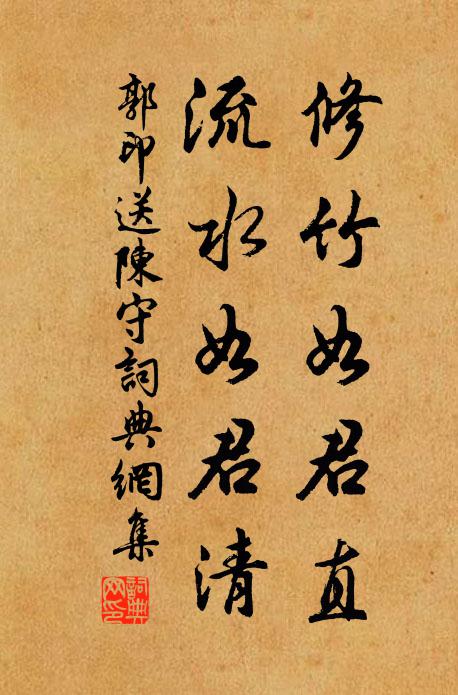 修竹如君直
流水如君清
郭印送陳守詞典網集
詞典
网印